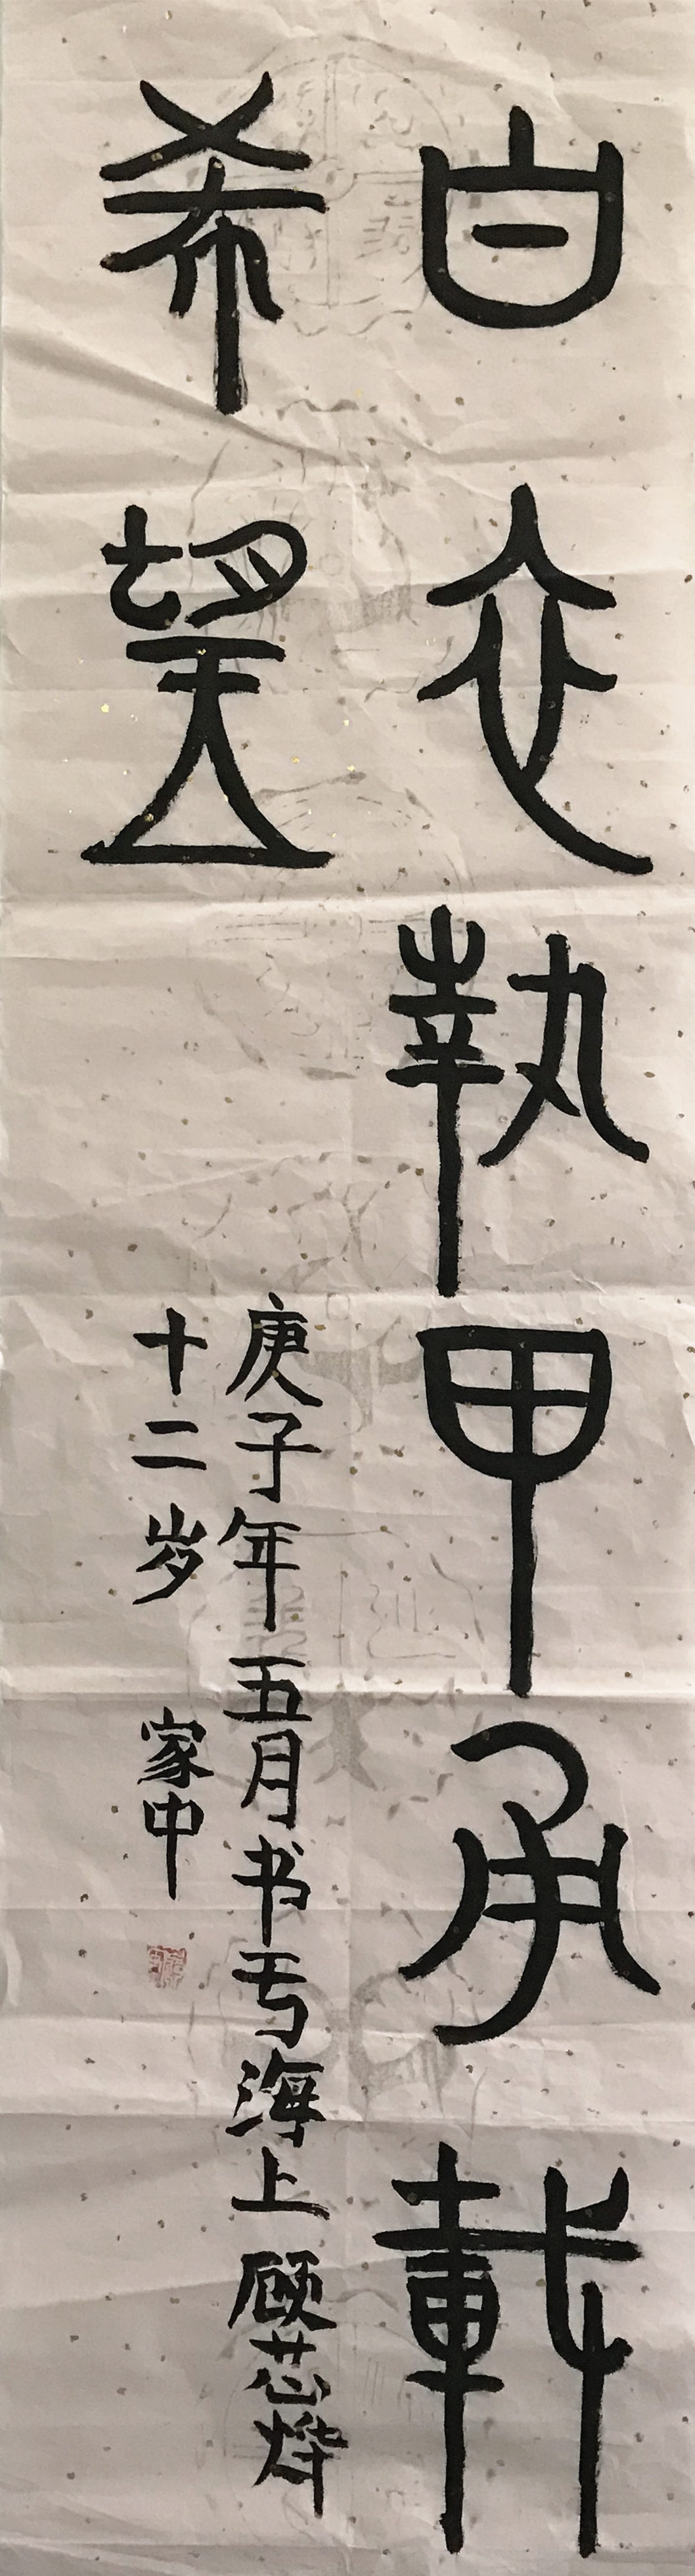 白衣執甲承載
希望
庚子年五月书于海上顾芯烨
十二岁 家中